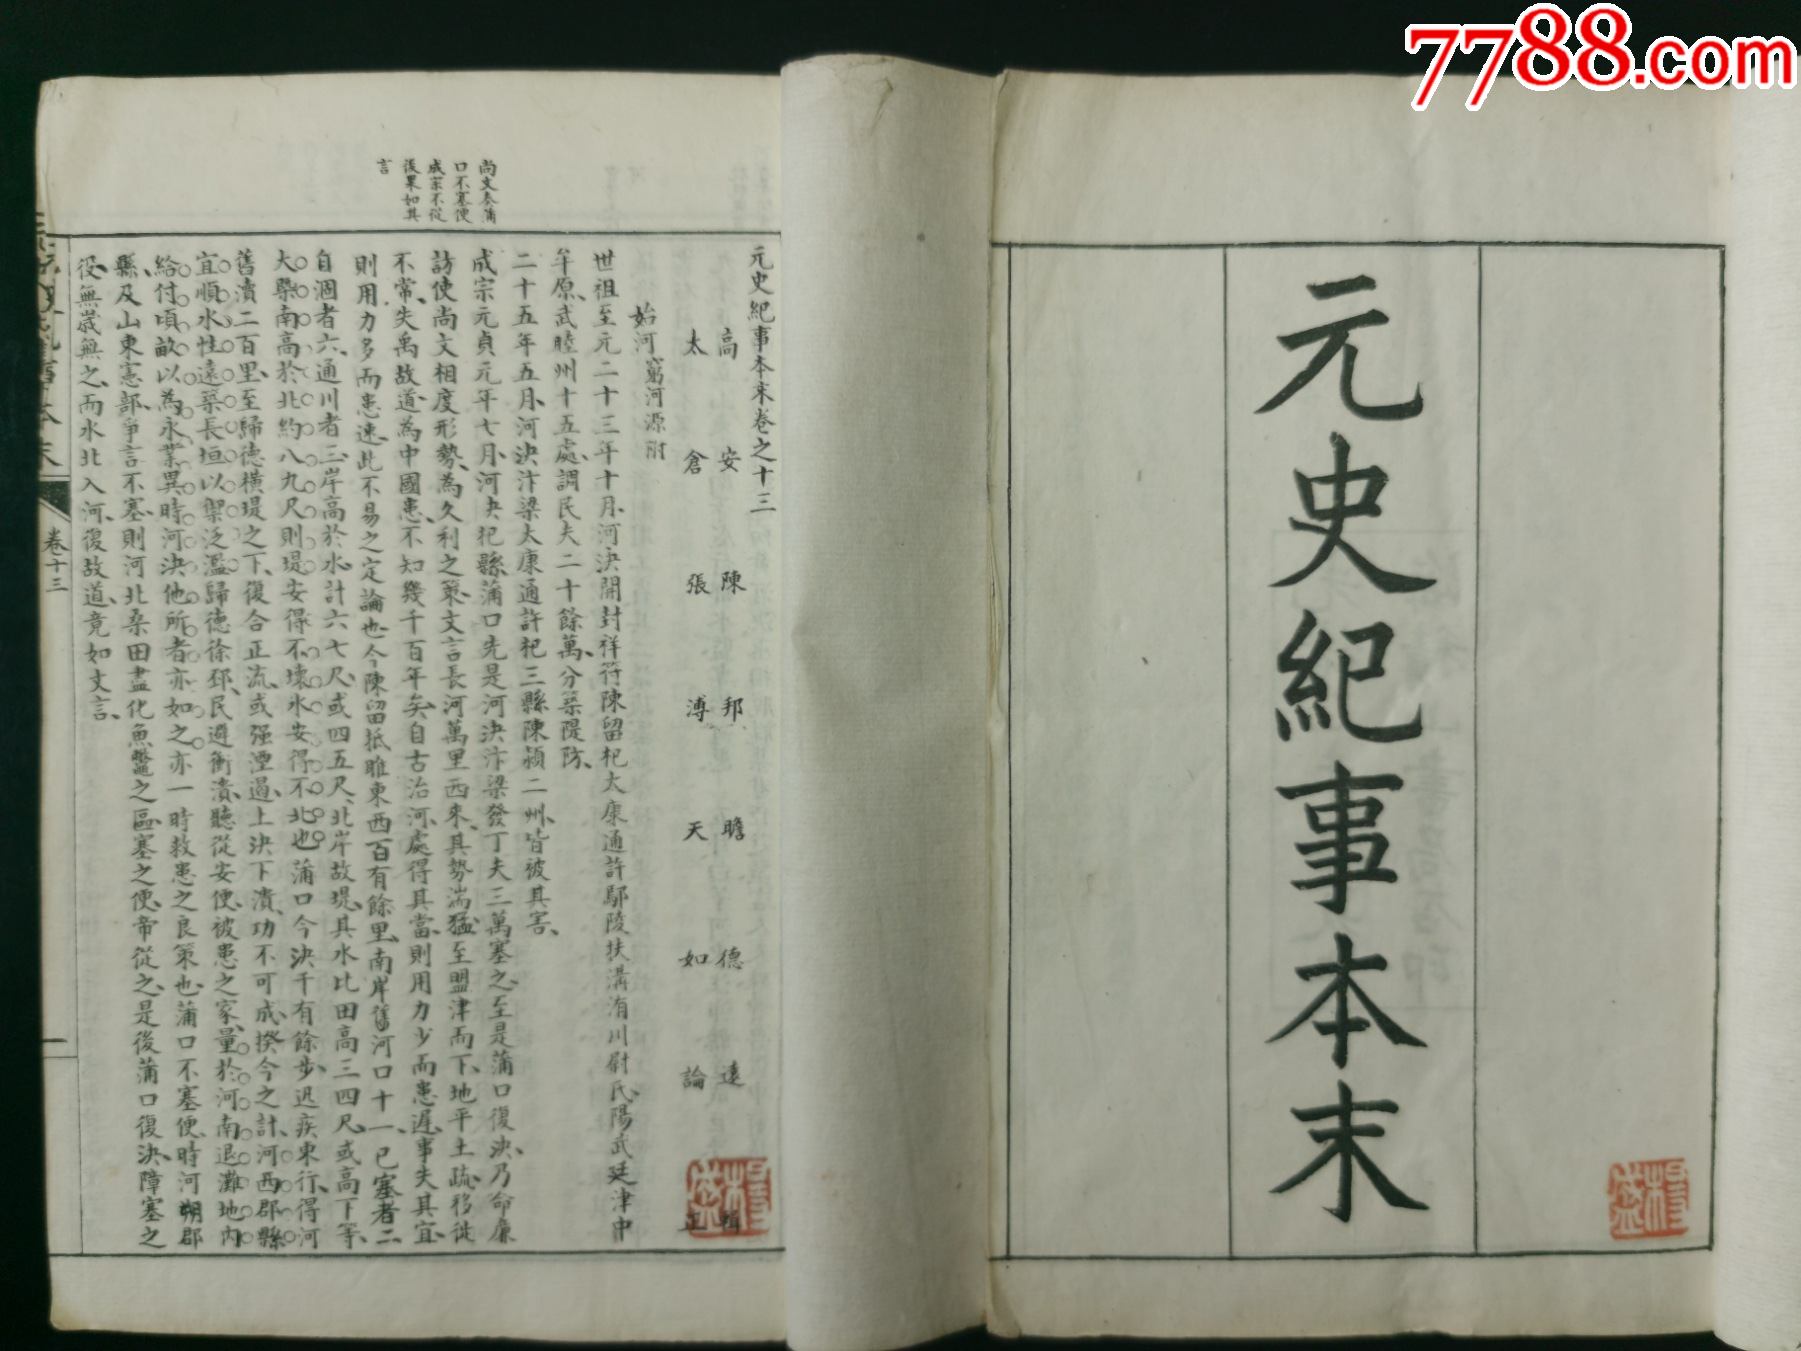 7788.com
元史紀事本末
元史紀事本末卷之十三
高安陳邦瞻德遠輯
太倉張溥天如論正
治河 窮河源附
世祖至元二十三年十月河決開封祥符陳留杞太康通許鄢陵扶溝洧川尉氏陽武延津中
牟原武睦州十五處調民夫二十餘萬分築隄防
二十五年五月河決汴梁太康通許杞三縣陳潁二州皆被其害
成宗元貞元年七月河決杞縣蒲口先是河決汴梁發丁夫三萬塞之至是蒲口復決乃命廉
訪使尚文相度形勢為久利之策文言長河萬里西來其勢湍猛至盟津而下地平土疏移徙
不常失禹故道為中國患不知幾千百年矣自古治河處得其當則用力少而患遲事失其宜
則用力多而患速此不易之定論也今陳留抵睢東西百有餘里南岸舊河口十一已塞者二
自涸者六通川者三岸高於水計六七尺或四五尺北岸故堤其水比田高三四尺或高下等
大槩南高於北約八九尺則堤安得不壞水安得不北也蒲口今決千有餘步迅疾東行得河
舊瀆二百里至歸德橫堤之下復合正流或强湮遏上決下潰功不可成揆今之計河西郡縣
宜順水性遠築長垣以禦泛濫歸德徐邳民避衝潰聽從安便被患之家量於河南退灘地內
給付頃畝以為永業異時河決他所者亦如之亦一時救患之良策也蒲口不塞便時河朔郡
縣及山東憲部爭言不塞則河北桑田盡化魚鼈之區塞之便帝從之是後蒲口復決障塞之
役無歲無之而水北入河復故道竟如文言
尚文奏蒲
口不塞便
成宗不從
後果如其
言
卷十三
一